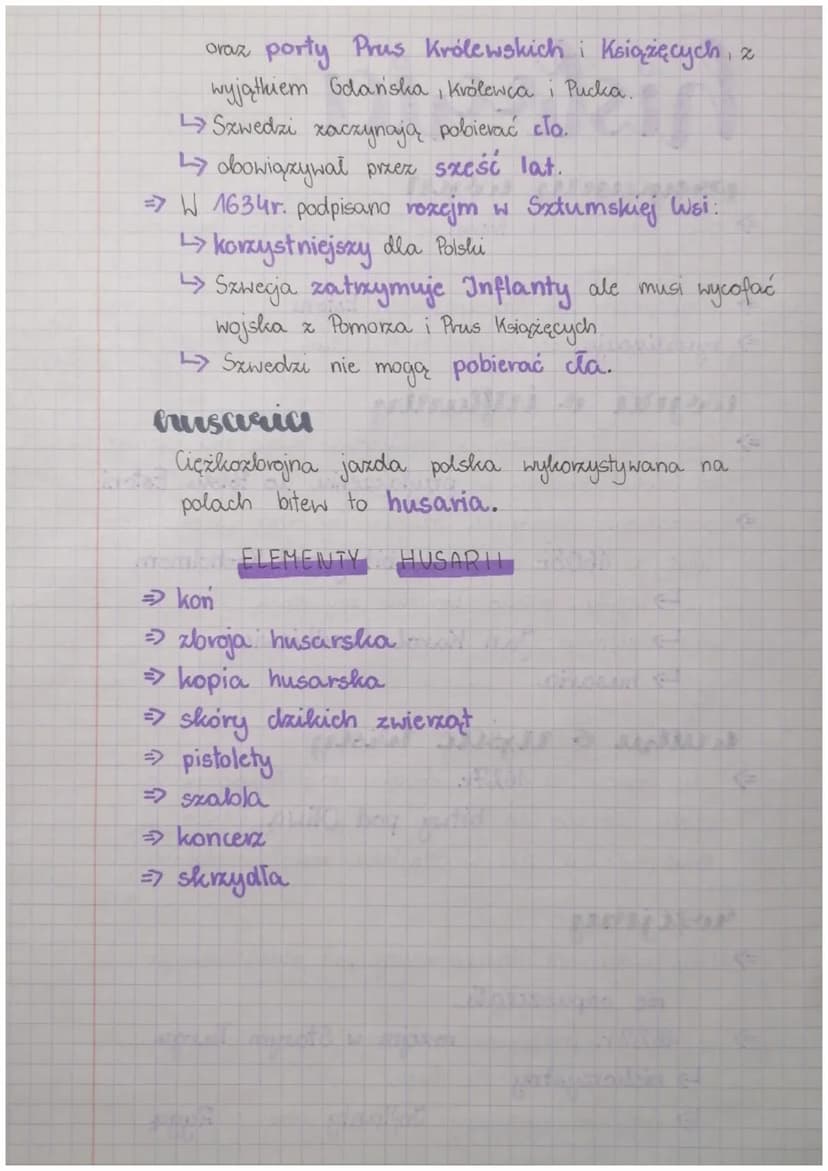 oraz porty Prus Królewskich i Książęcych, z
wyjątkiem Gdańska, Królewca i Pucka.
↳ Szwedzi zaczynają pobierać cło.
↳ obowiązywał przez sześć lat.
⇒ W 1634r. podpisano rozejm w Sztumskiej Wsi:
↳ korzystniejszy dla Polski
↳ Szwecja zatrzymuje Inflanty ale musi wycofać
wojska z Pomorza i Prus Książęcych
↳ Szwedzi nie mogą pobierać cła.
husaria
Ciężkozbrojna jazda polska wykorzystywana na
polach bitew to husaria.
ELEMENTY HUSARII
⇒ koń
⇒ zbroja husarska
⇒ kopia husarska
⇒ skóry dzikich zwierząt
⇒ pistolety
⇒ szabla
⇒ koncerz
⇒ skrzydła